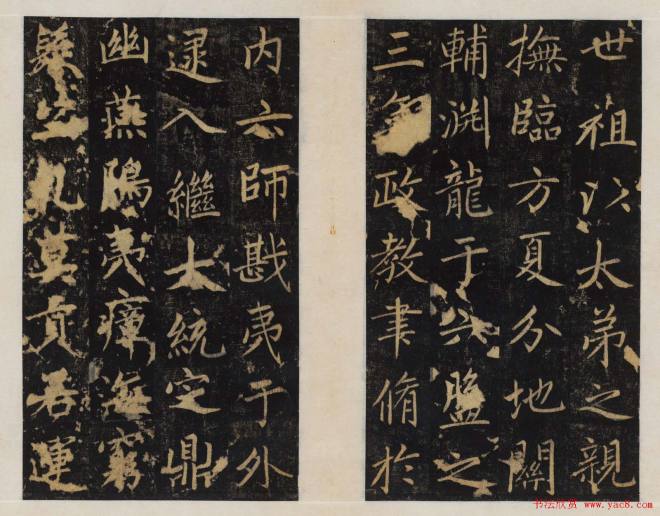 世祖以太弟之親
撫臨方夏分地關
輔淵龍于六盤之
三年政教聿脩於
内六師戡夷于外
逮入繼大統定鼎
幽燕隝夷瘴海窮
髮之其貢若運
书法欣赏 www.yac8.com